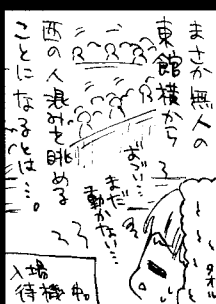 まさか無人の
東館横から
西の人混みを眺める
ことになるとは…。
あつい…
まだ
動かない…
タオル
入場
待機中。